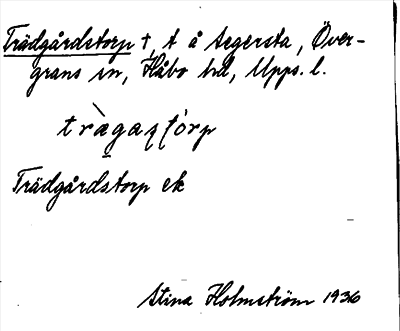 Trädgårdstorp †, t å Segersta, Över-
grans sn, Håbo hd, Upps. l.
Trädgårdstorp ek
Stina Holmström 1936